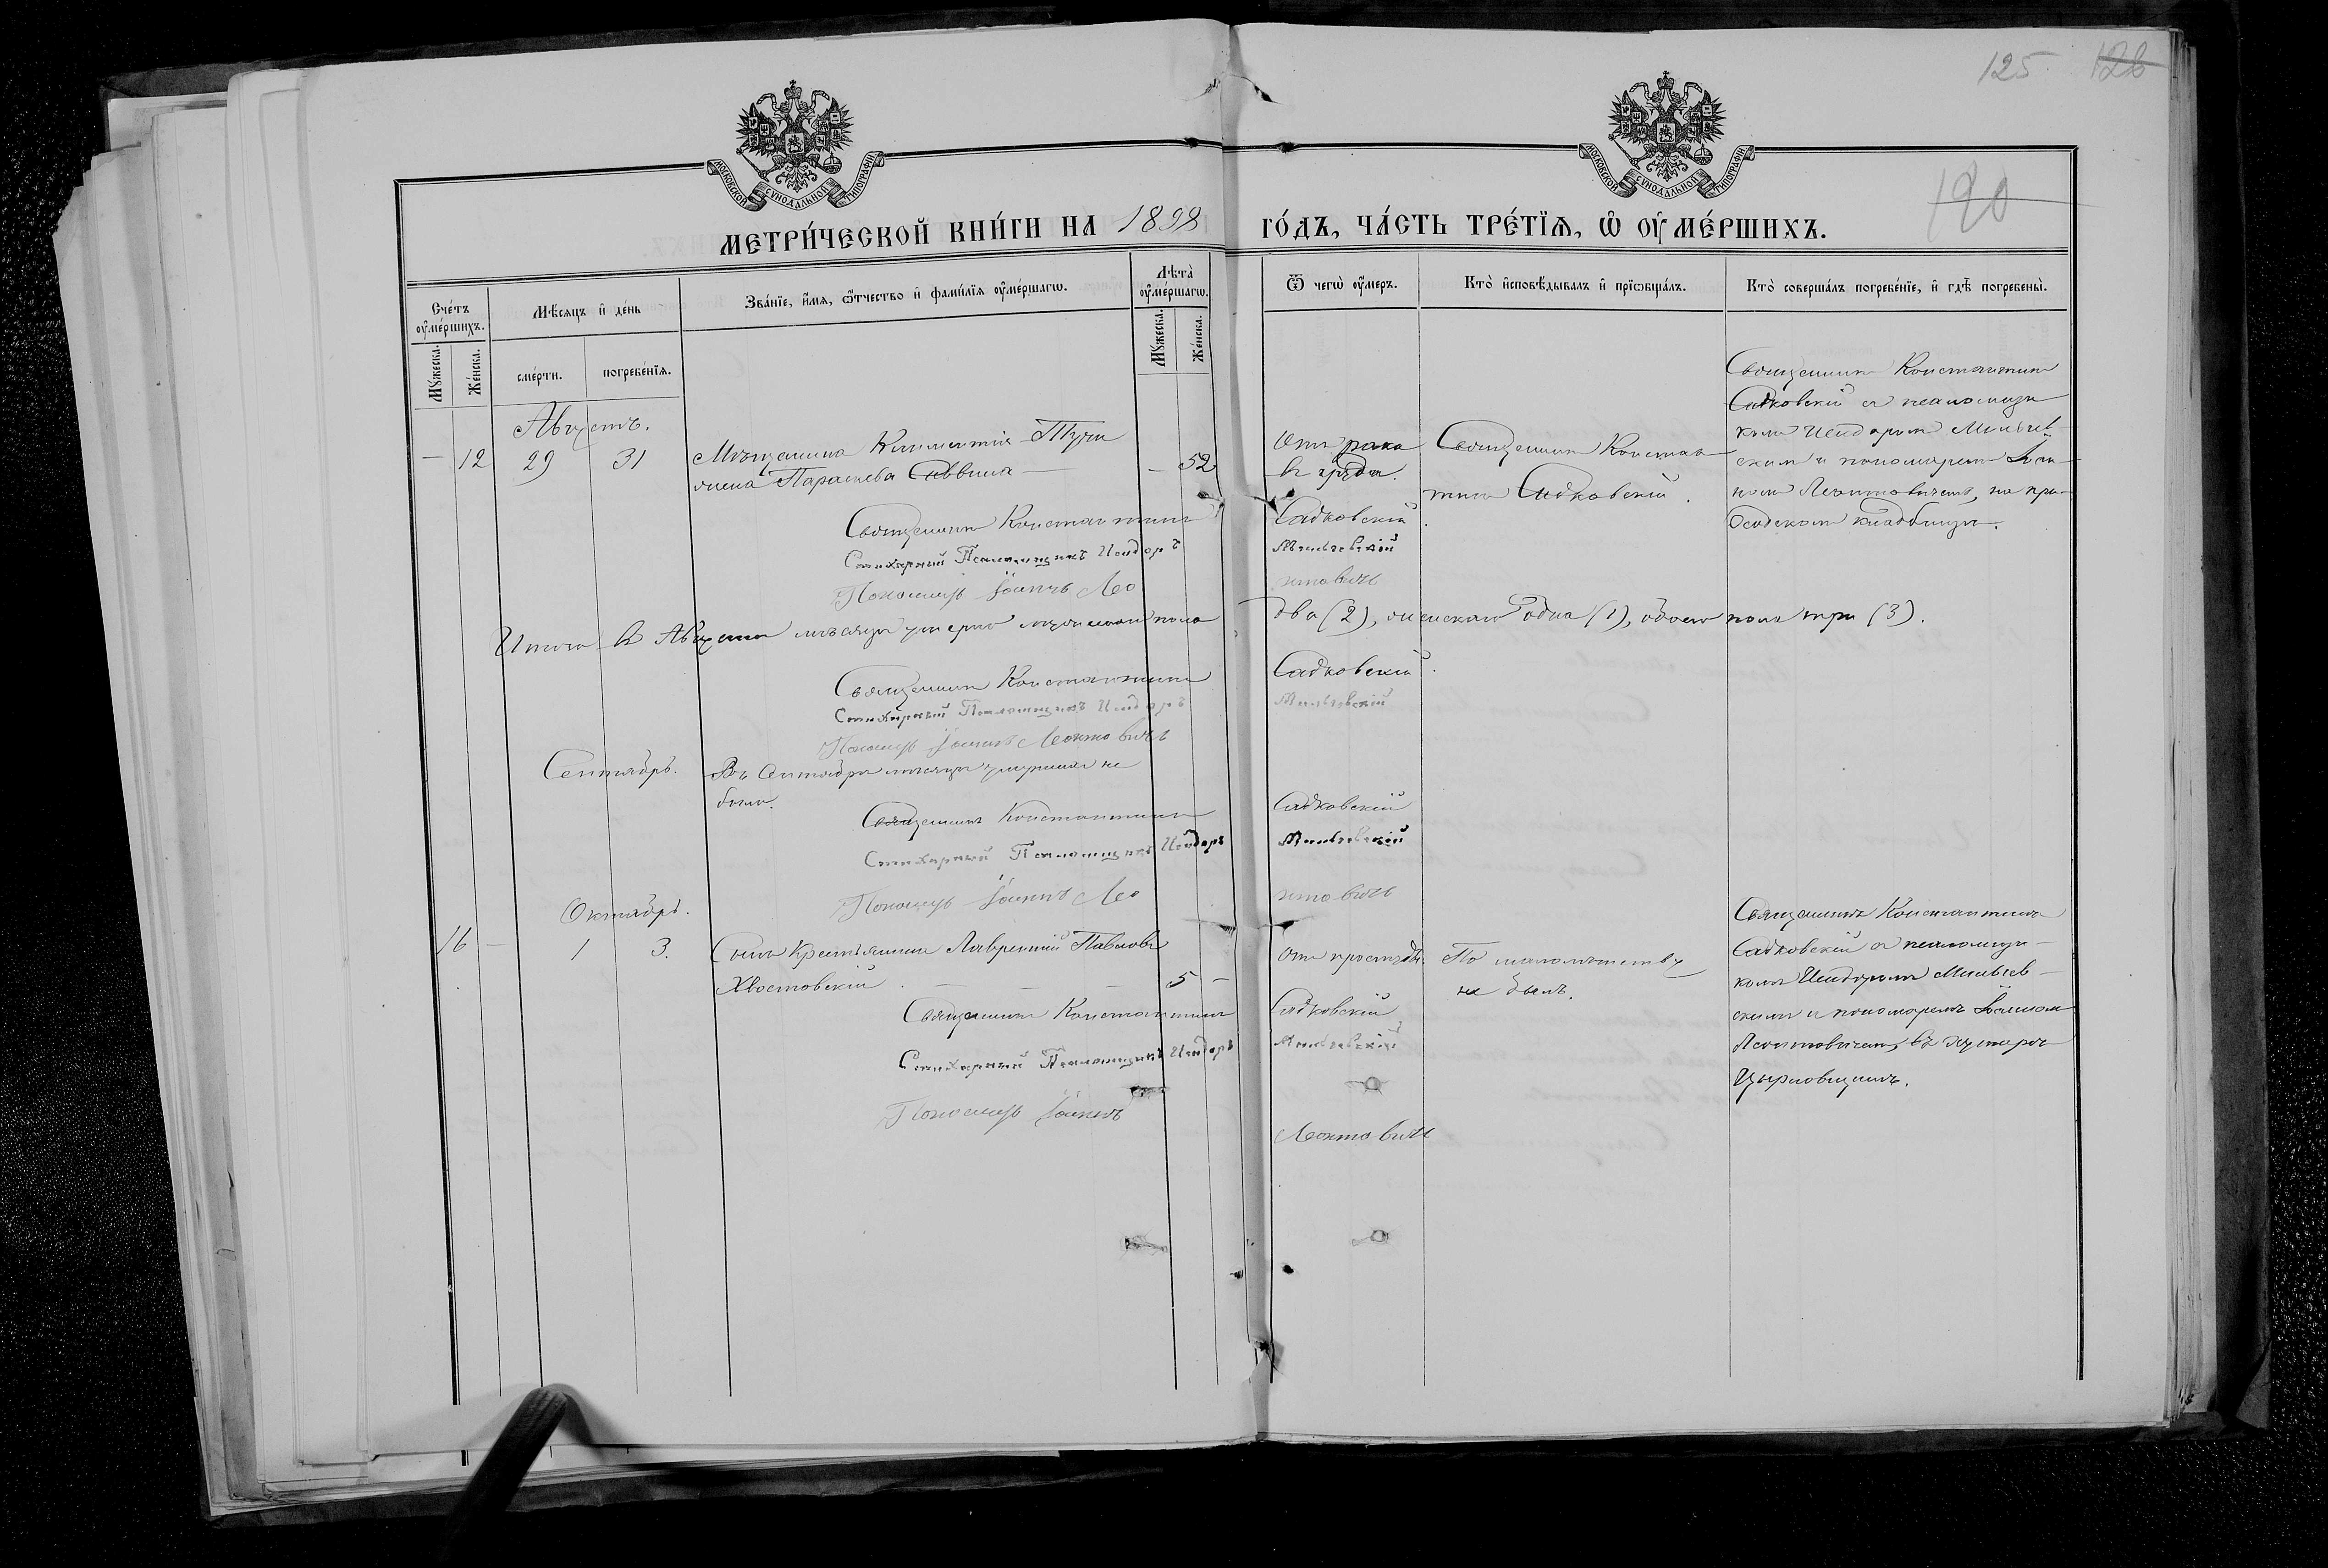 125 126
120
МОСКОВСКОЙ СѴНОДАЛЬНОЙ ТИПОГРАФІИ
МОСКОВСКОЙ СѴНОДАЛЬНОЙ ТИПОГРАФІИ
МЕТРИ́ЧЕСКОЙ КНИ́ГИ НА 1898 ГО́ДЪ, ЧА́СТЬ ТРЕ́ТІЯ, Ѽ ОУ҆МЕ́РШИХЪ.
Сче́тъ оу҆ме́ршихъ.
Мꙋ́жеска.
Же́нска.
Мѣ́сяцъ и҆ де́нь
сме́рти.
погребе́нїя.
Зва́нїе, и҆́мя, ѻ҆́тчество и҆ фами́лїя оу҆ме́ршагѡ.
Лѣ́та оу҆ме́ршагѡ.
Мꙋ́жеска.
Же́нска.
Ѿ чегѡ̀ оу҆́меръ.
Кто̀ и҆сповѣ́дывалъ и҆ прїѡбща́лъ.
Кто̀ соверша́лъ погребе́нїе, и҆ гдѣ̀ погребены̀.
Августъ.
— 12 29 31 Мѣщанина Климентія
жена Параскева Саввина — — 52
Отъ рака
въ груди.
Священникъ Констан
тинъ Садковскій.
Священникъ Константинъ
Садковскій съ псаломщи
комъ Исидоромъ
скимъ и пономаремъ Іоан
номъ Леонтовичемъ, на при-
ходскомъ кладбищѣ.
Священникъ Константинъ Садковскій.
Стихарный Псаломщикъ Исидоръ
Пономарь Іоаннъ Леонтовичъ
Итого въ Августѣ мѣсяцѣ умерло мужескаго пола два (2), женскаго одна (1), обоего пола три (3).
Священникъ Константинъ Садковскій.
Стихарный Псаломщикъ Исидоръ
Пономарь Іоаннъ Леонтовичъ
Сентябрь. Въ Сентябрѣ мѣсяцѣ умершихъ не
было.
Священникъ Константинъ Садковскій
Стихарный Псаломщикъ Исидоръ
Пономарь Іоаннъ Леонтовичъ
Октябрь.
16 — 1 3. Сынъ крестьянина Лаврентій Павловъ
Хвостовскій. — — — 5 —
Отъ простуды.
По малолѣтству
не былъ.
Священникъ Константинъ
Садковскій съ псаломщи-
комъ Исидоромъ
скимъ и пономаремъ Іоанномъ
Леонтовичемъ, въ хуторѣ
Священникъ Константинъ Садковскій
Стихарный Псаломщикъ Исидоръ
Пономарь Іоаннъ Леонтовичъ